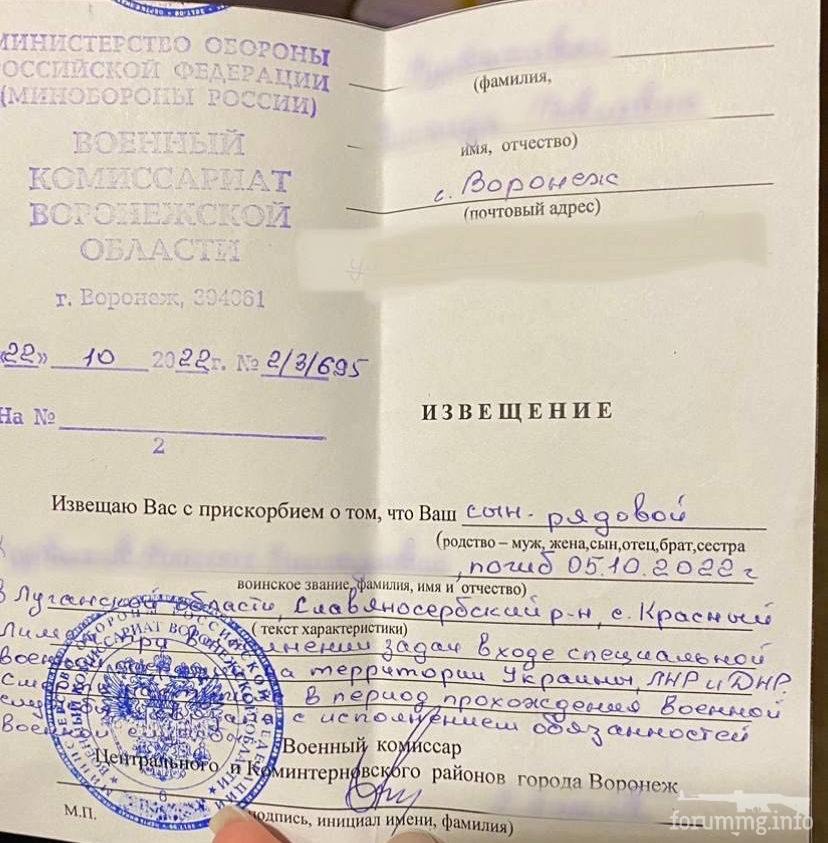 МИНИСТЕРСТВО ОБОРОНЫ
РОССИЙСКОЙ ФЕДЕРАЦИИ
(МИНОБОРОНЫ РОССИИ)
ВОЕННЫЙ
КОМИССАРИАТ
ВОРОНЕЖСКОЙ
ОБЛАСТИ
г. Воронеж, 394061
«22» 10 2022г. № 2/3/695
На №
2
(фамилия,
имя, отчество)
г. Воронеж
(почтовый адрес)
ИЗВЕЩЕНИЕ
Извещаю Вас с прискорбием о том, что Ваш сын - рядовой
(родство – муж, жена,сын,отец,брат,сестра
, погиб 05.10.2022 г
воинское звание, фамилия, имя и отчество)
в Луганской области, Славяносербский р-н, с. Красный
( текст характеристики)
Лиман при выполнении задач в ходе специальной
военной на территории Украины, ЛНР и ДНР.
в период прохождения военной
с исполнением обязанностей
военной службы
Военный комиссар
Центрального и Коминтерновского районов города Воронеж
М.П.
подпись, инициал имени, фамилия)
МИНИСТЕРСТВО ОБОРОНЫ РОССИЙСКОЙ ФЕДЕРАЦИИ
ВОЕННЫЙ КОМИССАРИАТ ВОРОНЕЖСКОЙ ОБЛАСТИ
6
forummg.info